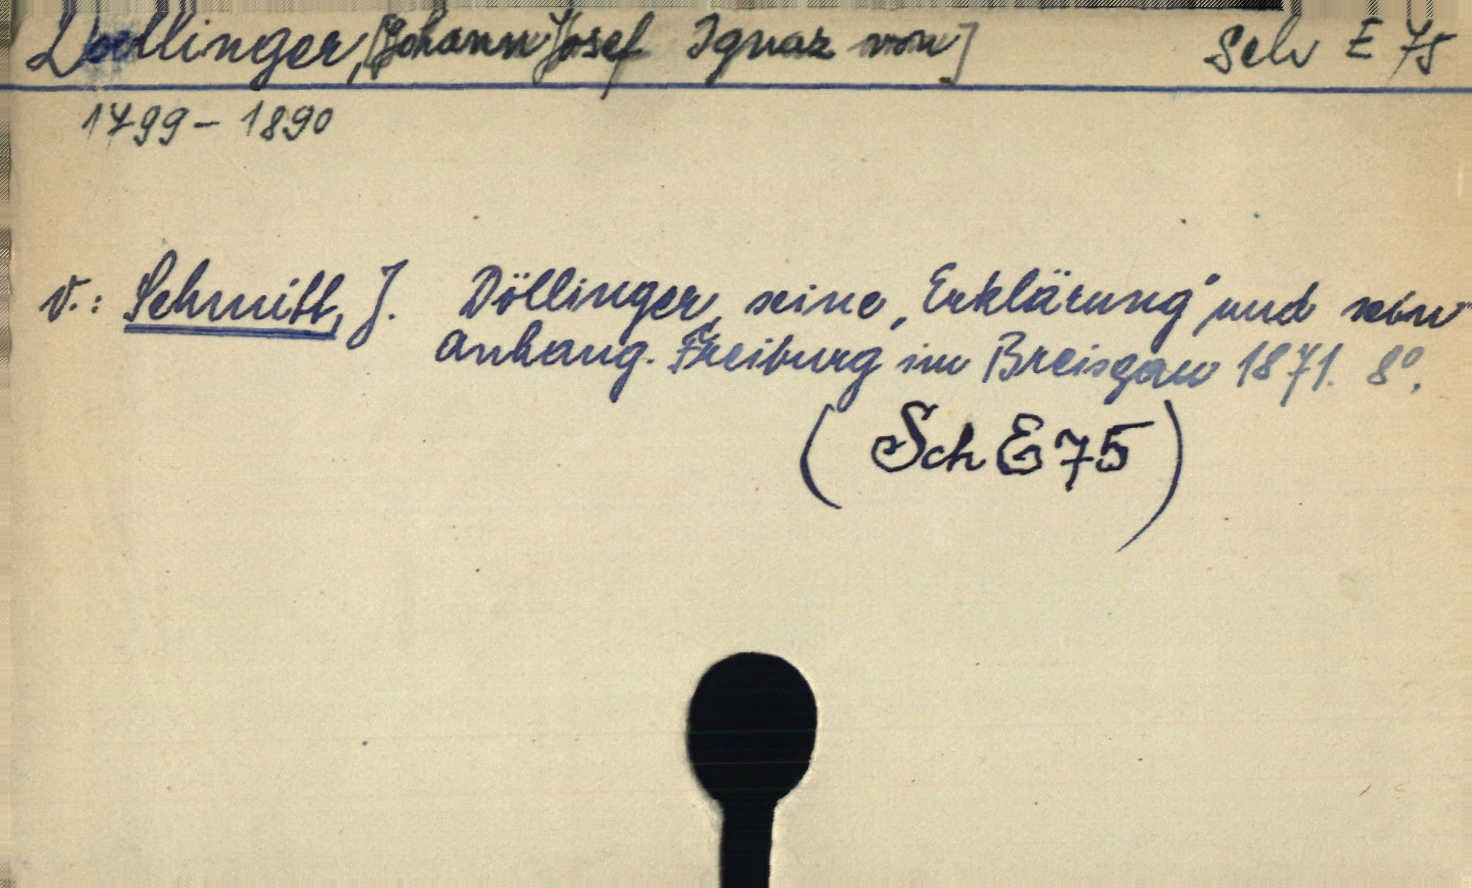 Doellinger, [Johann Josef Ignaz von] Sch E 75
1799 - 1890
v.: Schmitt, J. Döllinger, seine „Erklärung" und sein
Anhang. Freiburg im Breisgau 1871. 8°.
(Sch E 75)